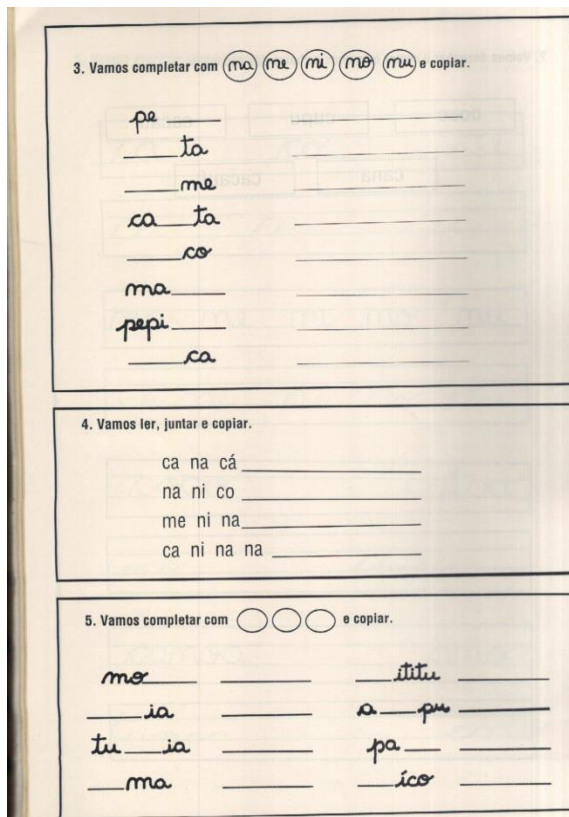 3. Vamos completar com na ne ni no nu e copiar.
pe ____ ____
____ ta ____
____ me ____
ca ____ ta ____
____ co ____
ma ____ ____
pepi ____ ____
____ ca ____
4. Vamos ler, juntar e copiar.
ca na cá ____
na ni co ____
me ni na ____
ca ni na na ____
5. Vamos completar com ◯ ◯ ◯ e copiar.
mo ____ ____ ____ ititu ____
____ ia ____ a ____ pu ____
tu ____ ia ____ pa ____ ____
____ ma ____ ____ íco ____